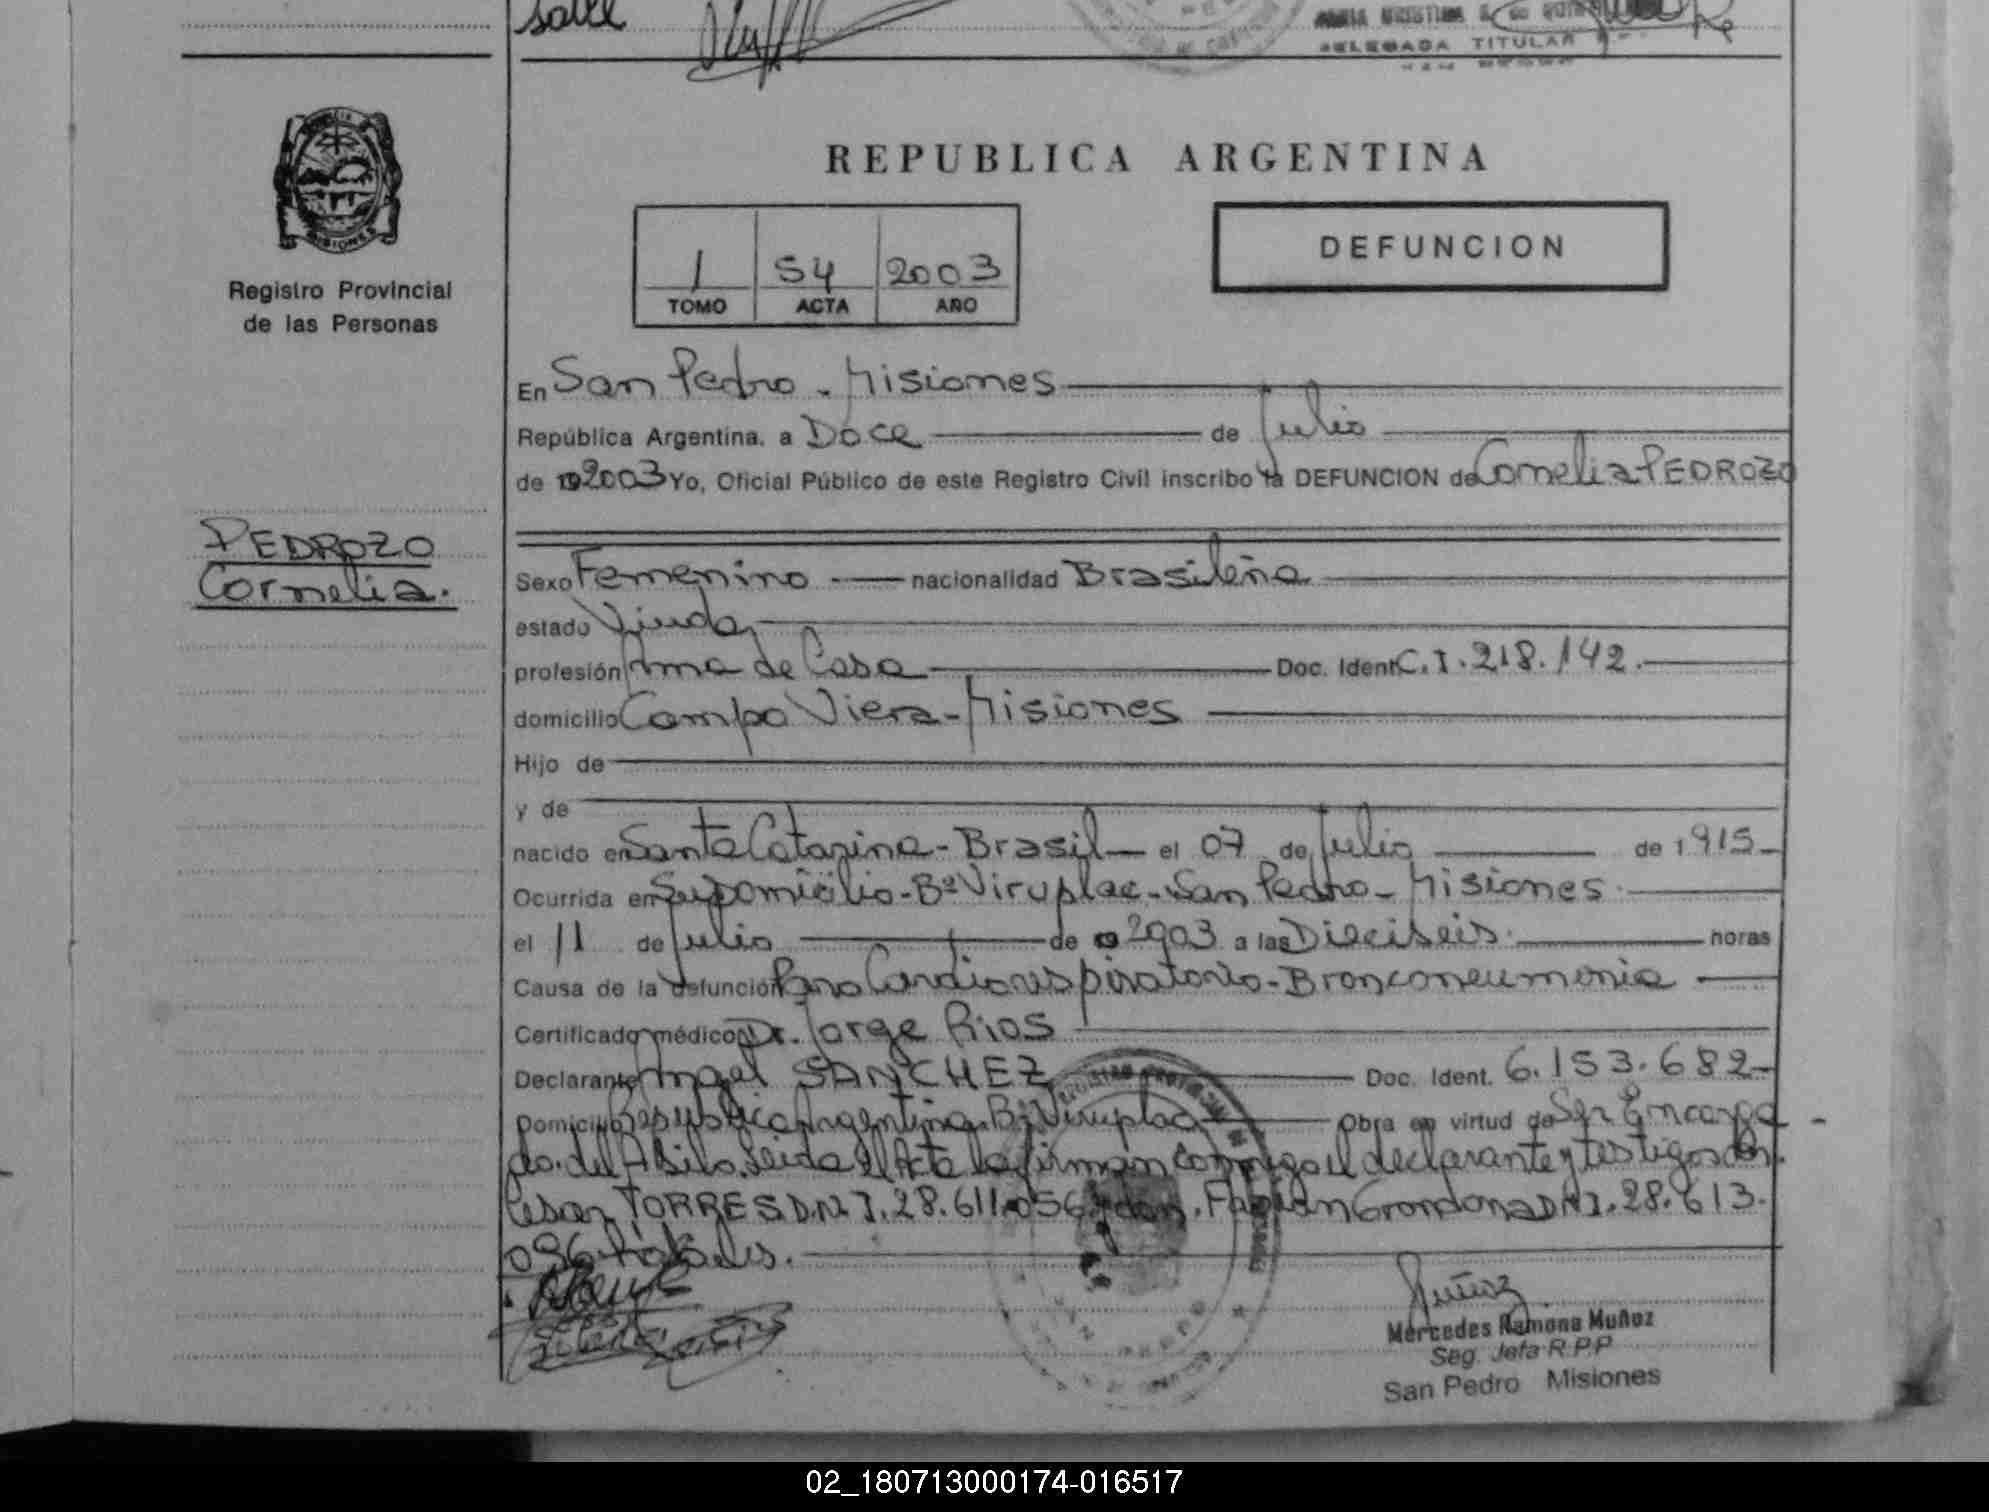 salle
DELEGADA TITULAR
MISIONES
Registro Provincial
de las Personas
REPUBLICA ARGENTINA
1 54 2003
TOMO ACTA AÑO
DEFUNCION
En San Pedro - Misiones
República Argentina, a Doce de Julio
de 19 2003 Yo, Oficial Público de este Registro Civil inscribo la DEFUNCION de Cornelia PEDROZO
PEDROZO
Cornelia.
Sexo Femenino nacionalidad Brasileña
estado Viuda
profesión Ama de Casa Doc. Ident. C.I. 218.142.
domicilio Campo Viera - Misiones
Hijo de
y de
nacido en Santa Catarina - Brasil el 07 de Julio de 1915
Ocurrida en Su Domicilio - Bº Viruplac - San Pedro - Misiones.
el 11 de Julio de 2003 a las Dieciseis. horas
Causa de la defunción Paro Cardiorespiratorio - Bronconeumonia
Certificado médico Dr. Jorge Rios
Declarante Angel SANCHEZ Doc. Ident. 6.153.682
Domicilio Republica Argentina Bº Viruplac Obra en virtud de Ser Encarga
do del Asilo. Leida el Acta la firman conmigo el declarante y testigos don.
Cesar TORRES D.N.I. 28.611.056 y don. Fabian Grondona D.N.I. 28.613.
096
Muñoz
Mercedes Ramona Muñoz
Seg. Jefa R.P.P
San Pedro Misiones
02_180713000174-016517